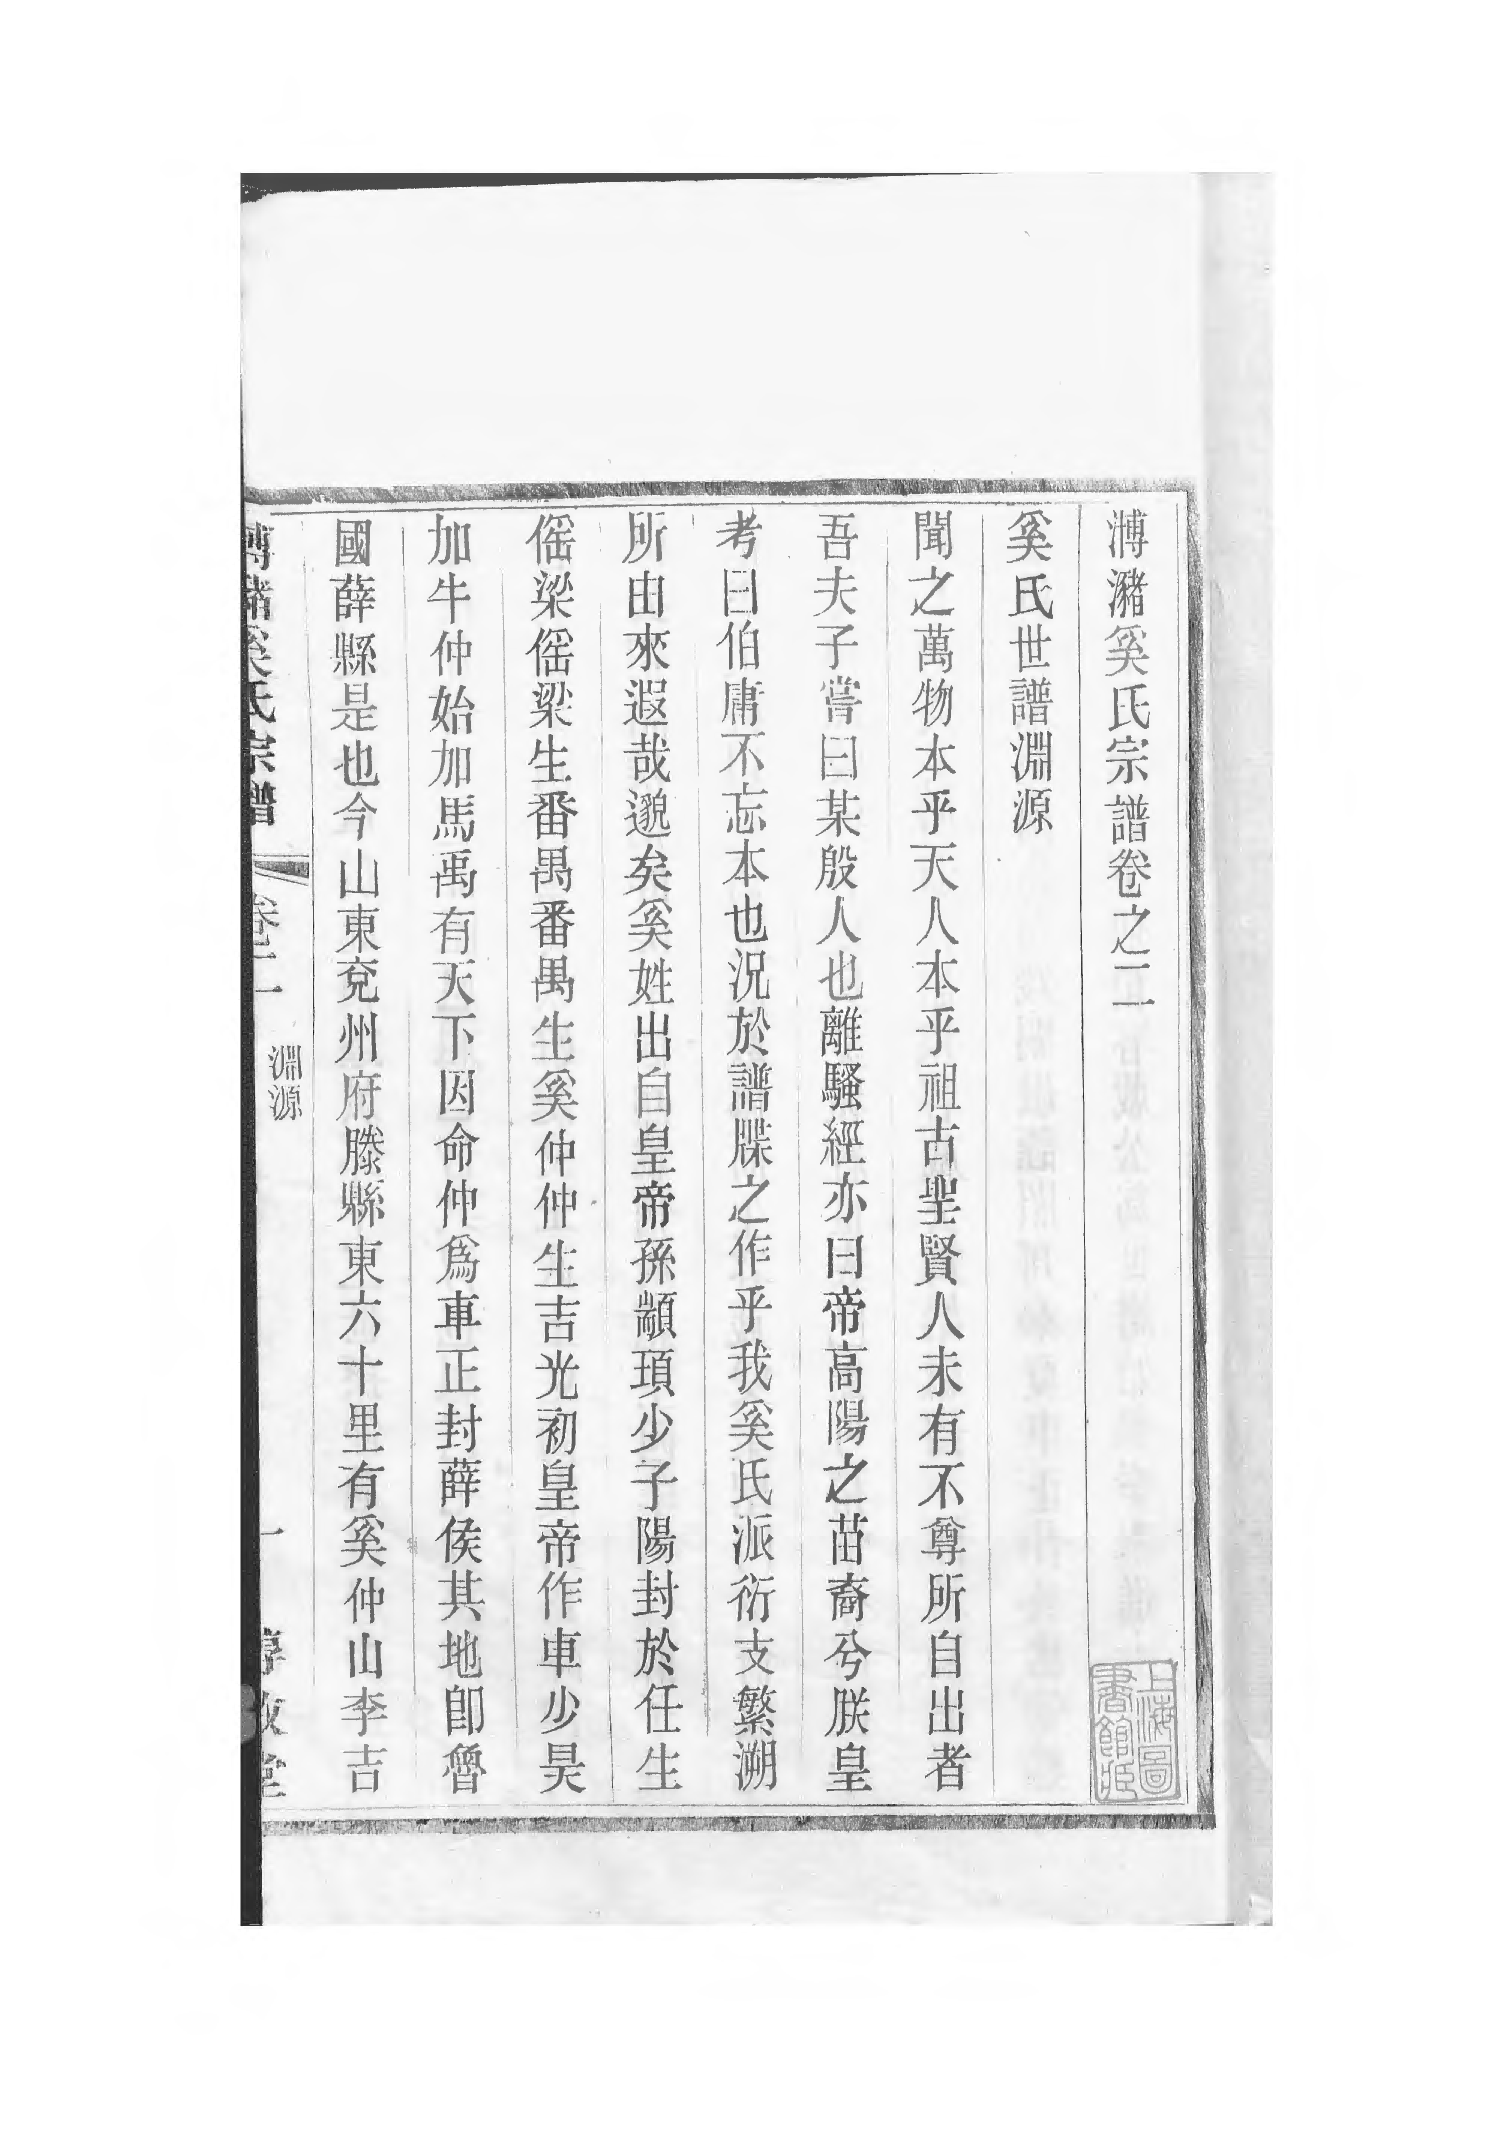 溥瀦奚氏宗譜卷之二
奚氏世譜淵源
聞之萬物本乎天人本乎祖古聖賢人未有不尊所自出者
吾夫子嘗曰某殷人也離騷經亦曰帝高陽之苗裔兮朕皇
考曰伯庸不忘本也況於譜牒之作乎我奚氏派衍支繁溯
所由來遐哉邈矣奚姓出自皇帝孫顓頊少子陽封於任生
傜梁傜梁生番禺番禺生奚仲仲生吉光初皇帝作車少昊
加牛仲始加馬禹有天下因命仲爲車正封薛侯其地卽魯
國薛縣是也今山東兗州府滕縣東六十里有奚仲山李吉
溥瀦奚氏宗譜
卷二
淵源
一
敦堂
上海圖書館藏